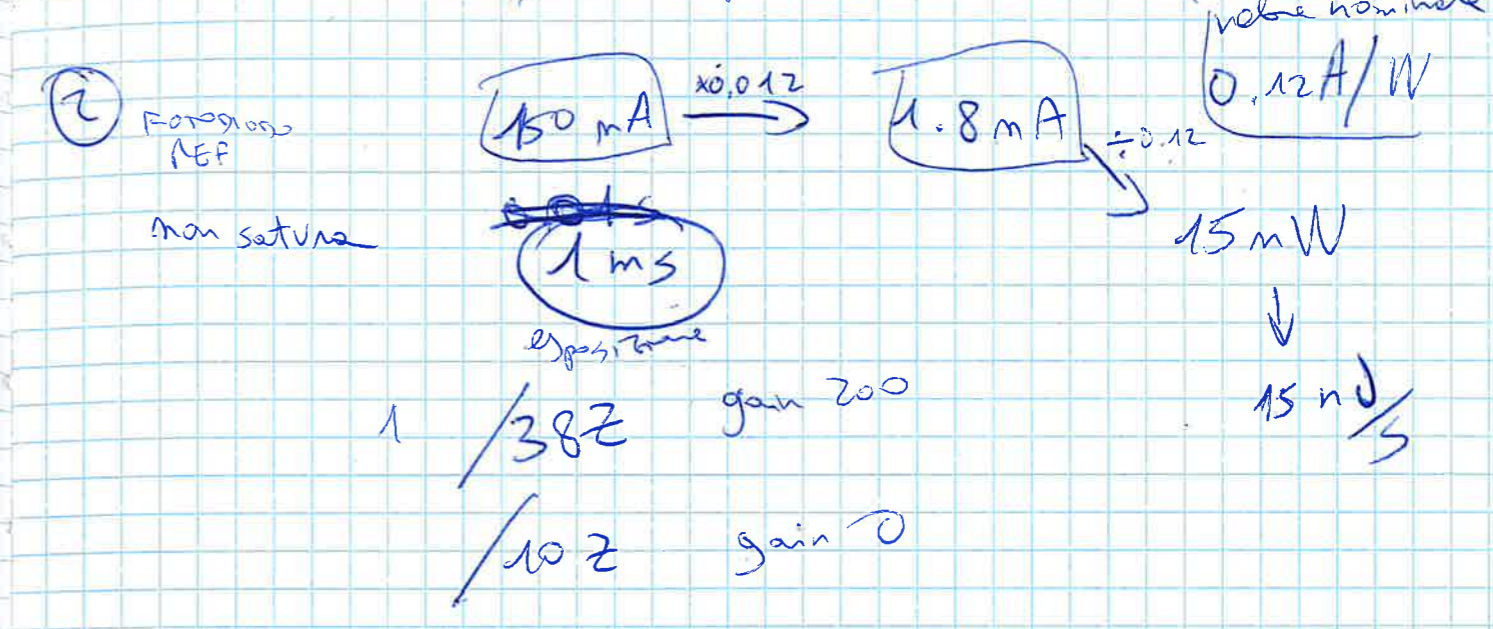 valore nominale
2 FOTODIODO REF 150 nA x0.012 1.8 nA ÷0.12 0.12 A/W
non satura 1 ms 15 nW
esposizione
1 /382 gain 200 15 nJ/s
/102 gain 0